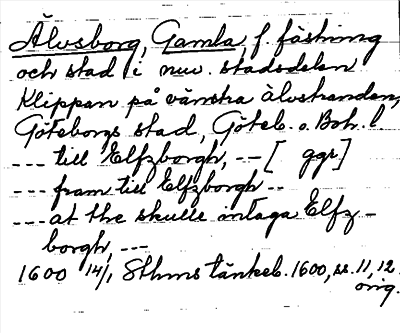 Älvsborg, Gamla, f. fästning
och stad i nuv. stadsdelen
Klippan på vänstra älvstranden,
Göteborgs stad, Göteb. o. Boh. l
--- till Elfzborgh, -- [ ggr]
--- fram till Elfzborgh --
--- at the skulle intaga Elfz-
borgh, ---
1600 14/1, Sthms tänkeb. 1600, ss. 11, 12.
orig.